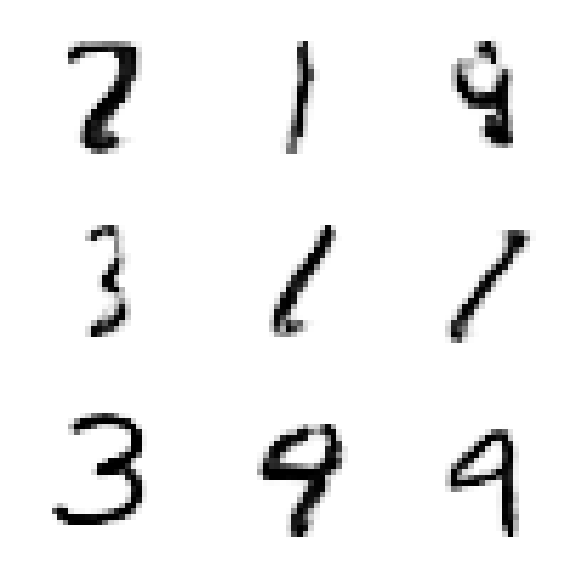 2 1 9
3 6 1
3 9 9